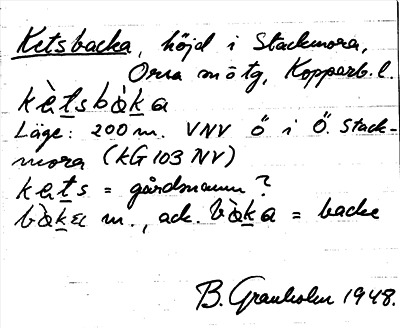 Ketsbacka, höjd i Stackmora,
Orsa mötg, Kopparb. l.
kètsbàka
Läge: 200 m. VNV Ö i Ö. Stack-
mora (KG 103 NV)
kets = gårdsnamn?
bàkæ m., ack. bàka = backe
B. Granholm 1948.